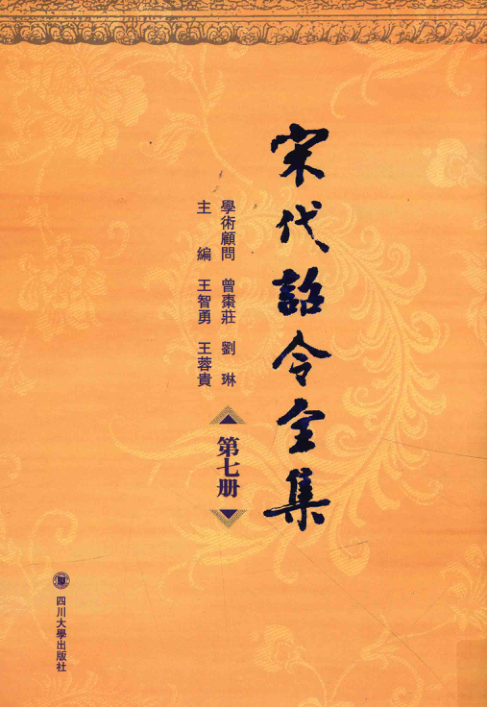 宋代詔令全集
學術顧問 曾棗莊 劉琳
主編 王智勇 王蓉貴
第七册
四川大學出版社